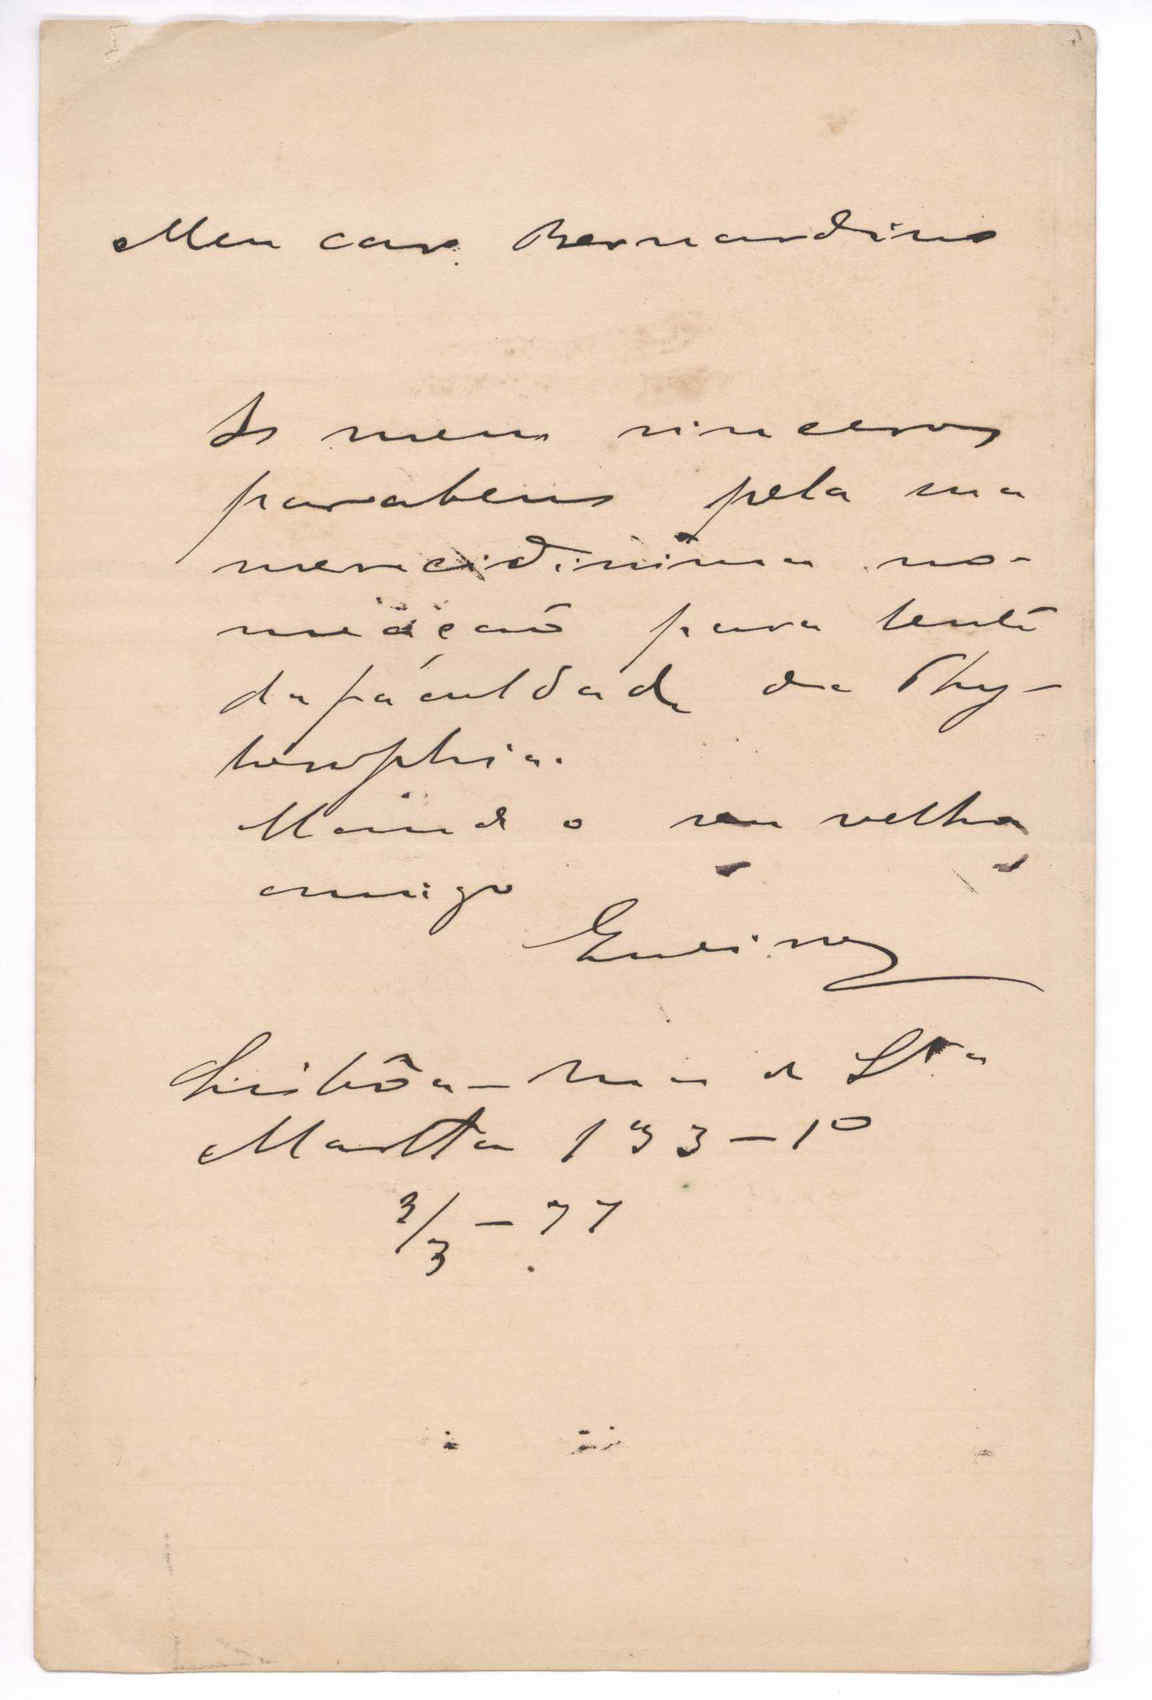 Meu caro Bernardino
Os meus sinceros
parabens pela sua
merecidissima no-
meação para lente
da faculdade de Phy-
losophia.
Mande o seu velho
amigo
Lisbôa - Rua de Sta
Martha 133 - 1º
3/3 - 77